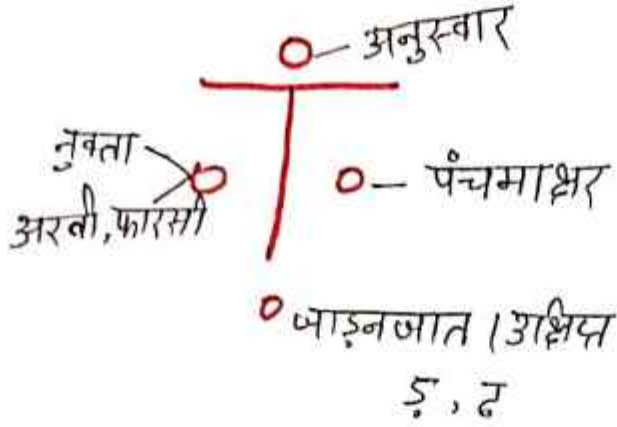 अनुस्वार
नुक्ता
अरबी, फारसी
पंचमाक्षर
जाड़नजात / उक्षिप्त
ड़, ढ